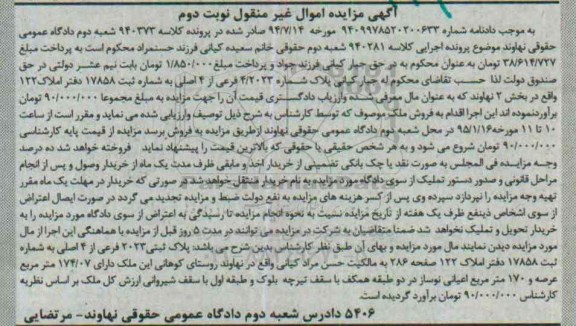 آگهی مزایده اموال غیر منقول نوبت دوم
به موجب دادنامه شماره ۹۴۰۹۹۷۸۵۲۰۳۰۰۶۳۳ مورخه ۹۴/۷/۱۴ صادر شده در پرونده کلاسه ۹۴۰۳۷۳ شعبه دوم دادگاه عمومی
حقوقی نهاوند موضوع پرونده اجرایی کلاسه ۹۴۰۲۸۱ شعبه دوم حقوقی خانم سعیده کیانی فرزند حسنمراد محکوم است به پرداخت مبلغ
۳۸/۶۱۴/۷۲۷ تومان به عنوان محکوم به در حق جبار کیانی فرزند جواد و پرداخت مبلغ ۱/۸۵۰/۰۰۰ تومان بابت نیم عشر دولتی در حق
صندوق دولت لذا حسب تقاضای محکوم له جبار کیانی پلاک شماره ۴/۲۰۲۳ فرعی از ۴ اصلی به شماره ثبت ۱۷۸۵۸ دفتر املاک ۱۲۲
واقع در بخش ۲ نهاوند که به عنوان مال معرفی شده وارزیاب دادگستری قیمت آن را جهت مزایده به مبلغ مجموعا ۹۰/۰۰۰/۰۰۰ تومان
برآوردنموده اند این اجرا اقدام به فروش ملک موصوف که توسط کارشناس به شرح ذیل توصیف وارزیابی شده می نماید و مقرر است از ساعت
۱۰ تا ۱۱ مورخه ۹۵/۱/۱۶ در محل شعبه دوم دادگاه عمومی حقوقی نهاوند ازطریق مزایده به فروش برسد مزایده از قیمت پایه کارشناسی
۹۰/۰۰۰/۰۰۰ تومان شروع می شود و به هر شخص حقیقی یا حقوقی که بالاترین قیمت را پیشنهاد نماید فروخته خواهد شد ده درصد
وجه مزایده فی المجلس به صورت نقد یا چک بانکی تضمینی از خریدار اخذ و مابقی ظرف مدت یک ماه از خریدار وصول و پس از انجام
مراحل قانونی و صدور دستور تملیک از سوی دادگاه مورد مزایده به نام خریدار منتقل خواهد شد در صورتی که خریدار در مهلت یک ماه مقرر
تهیه وجه مزایده را نپردازد سپرده وی پس از کسر هزینه های مزایده به نفع دولت ضبط و مزایده تجدید می گردد در صورت ایصال اعتراض
از سوی اشخاص ذینفع ظرف یک هفته از تاریخ مزایده نسبت به نحوه انجام مزایده تا رسیدگی به اعتراض از سوی دادگاه مورد مزایده را به
خریدار تحویل و تملیک نخواهد شد ضمنا متقاضیان به شرکت در مزایده می توانند در مدت ۵ روز قبل از مزایده با هماهنگی این اجرا از مال
مورد مزایده دیدن نمایند مال مورد مزایده و بهای آن طبق نظر کارشناس بدین شرح می باشد: پلاک ثبتی ۲۰۲۳ فرعی از ۴ اصلی به شماره
ثبت ۱۷۸۵۸ دفتر املاک ۱۲۲ صفحه ۲۸۶ به مالکیت حسن مراد کیانی واقع در نهاوند روستای کوهانی این ملک دارای ۱۷۴/۰۷ متر مربع
عرصه و ۱۷۰ متر مربع اعیانی نوساز در دو طبقه همکف با سقف تیرچه بلوک و طبقه اول با سقف شیروانی ارزش کل ملک بر اساس نظریه
کارشناس ۹۰/۰۰۰/۰۰۰ تومان برآورد گردیده است.
۵۴۰۶ دادرس شعبه دوم دادگاه عمومی حقوقی نهاوند- مرتضایی